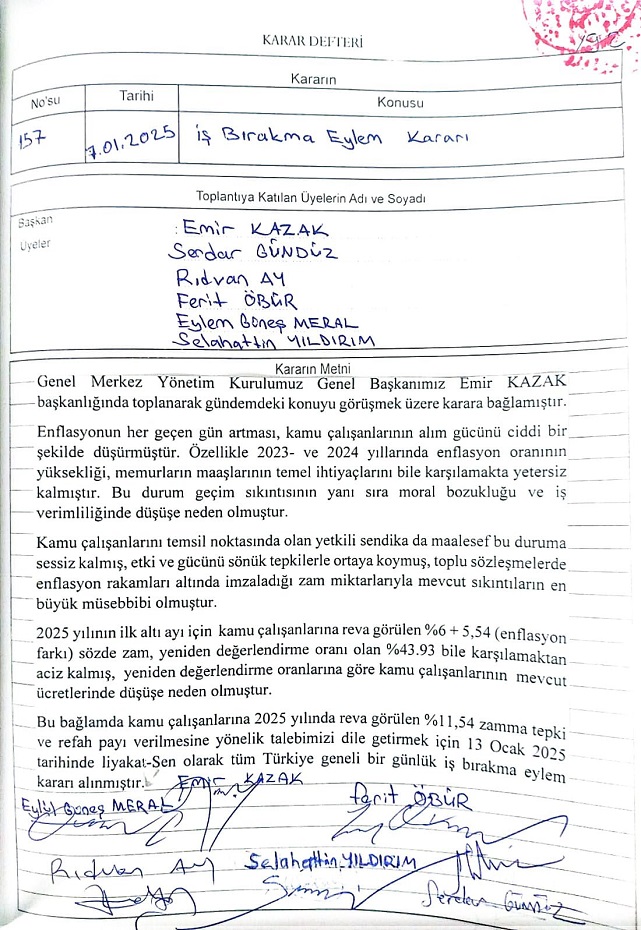 KARAR DEFTERİ
Kararın
No'su
Tarihi
Konusu
157
7.01.2025
iş Bırakma Eylem Kararı
Toplantıya Katılan Üyelerin Adı ve Soyadı
Başkan
: Emir KAZAK
Üyeler
Serdar GÜNDÜZ
Rıdvan AY
Ferit ÖBÜR
Eylem Güneş MERAL
Selahattin YILDIRIM
Kararın Metni
Genel Merkez Yönetim Kurulumuz Genel Başkanımız Emir KAZAK
başkanlığında toplanarak gündemdeki konuyu görüşmek üzere karara bağlamıştır.
Enflasyonun her geçen gün artması, kamu çalışanlarının alım gücünü ciddi bir
şekilde düşürmüştür. Özellikle 2023- ve 2024 yıllarında enflasyon oranının
yüksekliği, memurların maaşlarının temel ihtiyaçlarını bile karşılamakta yetersiz
kalmıştır. Bu durum geçim sıkıntısının yanı sıra moral bozukluğu ve iş
verimliliğinde düşüşe neden olmuştur.
Kamu çalışanlarını temsil noktasında olan yetkili sendika da maalesef bu duruma
sessiz kalmış, etki ve gücünü sönük tepkilerle ortaya koymuş, toplu sözleşmelerde
enflasyon rakamları altında imzaladığı zam miktarlarıyla mevcut sıkıntıların en
büyük müsebbibi olmuştur.
2025 yılının ilk altı ayı için kamu çalışanlarına reva görülen %6 + 5,54 (enflasyon
farkı) sözde zam, yeniden değerlendirme oranı olan %43.93 bile karşılamaktan
aciz kalmış, yeniden değerlendirme oranlarına göre kamu çalışanlarının mevcut
ücretlerinde düşüşe neden olmuştur.
Bu bağlamda kamu çalışanlarına 2025 yılında reva görülen %11,54 zamma tepki
ve refah payı verilmesine yönelik talebimizi dile getirmek için 13 Ocak 2025
tarihinde liyakat-Sen olarak tüm Türkiye geneli bir günlük iş bırakma eylem
kararı alınmıştır.
Emir KAZAK
Eylül Güneş MERAL
Ferit ÖBÜR
Rıdvan AY
Selahattin YILDIRIM
Serdar GÜNDÜZ